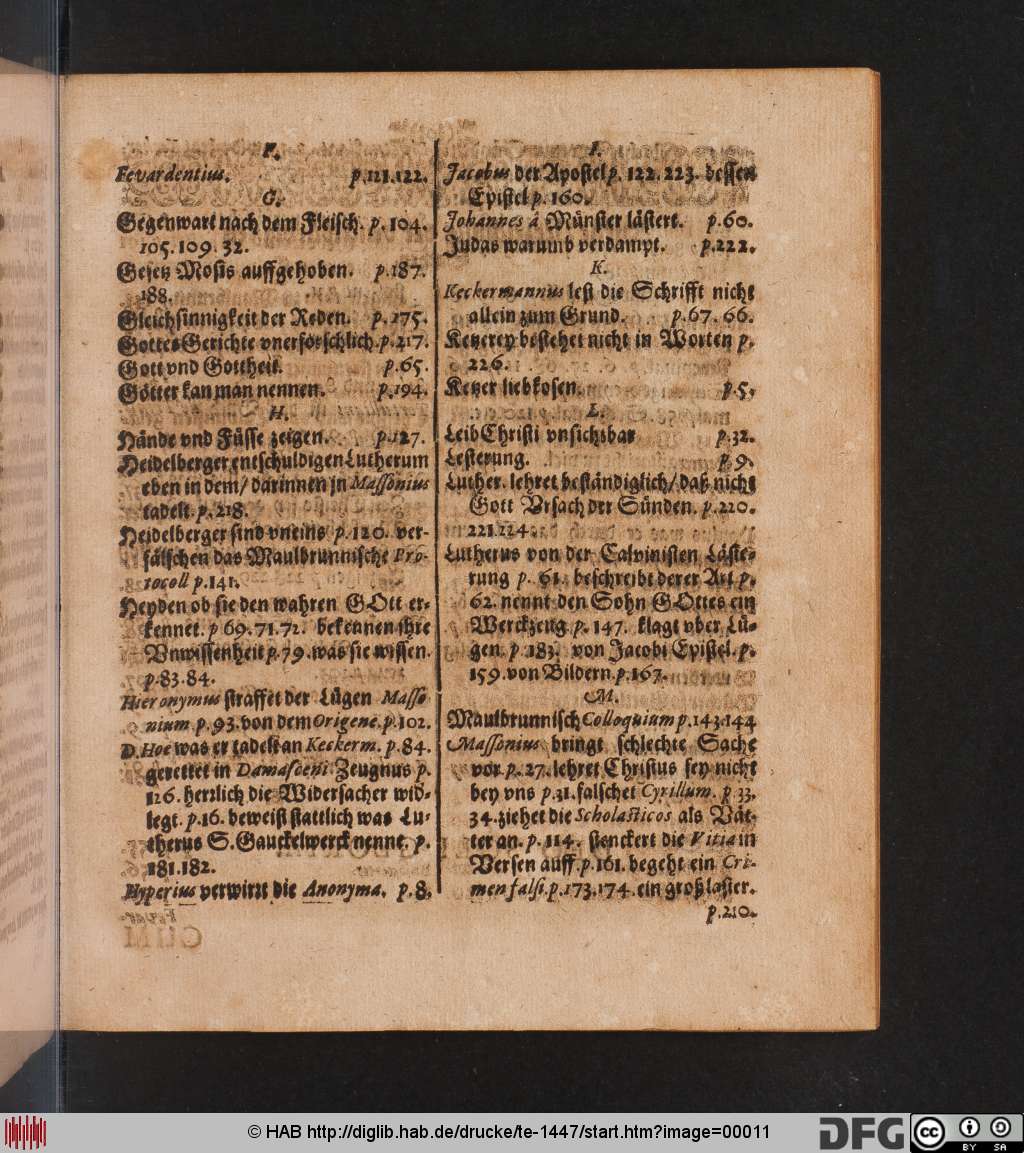 F.
Fevardentius. p.121.122.
G.
Gegenwart nach dem Fleisch. p.104.
105.109.32.
Gesetz Mosis auffgehoben. p.187.
188.
Gleichsinnigkeit der Reden. p.175.
Gottes Gerichte vnerforschlich. p.217.
Gott vnd Gottheit. p.65.
Götter kan man nennen. p.194.
H.
Hände vnd Füsse zeigen. p.127.
Heidelberger entschuldigen Lutherum
eben in dem/ darinnen jn Massonius
tadelt. p.218.
Heidelberger sind vneins p.120. ver-
fälschen das Maulbrunnische Pro-
tocoll p.141.
Heyden ob sie den wahren GOtt er-
kennet. p 69.71.72. bekennen jhre
Vnwissenheit p.79. was sie wissen.
p.83.84.
Hieronymus straffet der Lügen Masso
nium p.93. von dem Origene. p.102.
D. Hoe was er tadelt an Keckerm. p.84.
gerettet in Damasceni Zeugnus p.
126. herrlich die Widersacher wid-
legt. p.16. beweist stattlich was Lu-
therus S. Gauckelwerck nennt. p.
181.182.
Hyperius verwirrt die Anonyma. p.8.
I.
Jacobus der Apostel p. 122.223. dessen
Epistel p.160.
Johannes à Münster lästert. p.60.
Judas warumb verdampt. p.222.
K.
Keckermannus lest die Schrifft nicht
allein zum Grund. p.67.66.
Ketzerey bestehet nicht in Worten p.
226.
Ketzer liebkosen. p.5.
L.
Leib Christi vnsichtbar p.32.
Lesterung. p.9.
Luther. lehret beständiglich/ daß nicht
Gott Vrsach der Sünden. p.220.
221.224.
Lutherus von der Calvinisten Läste-
rung p. 61. beschreibt derer Art p.
62. nennt den Sohn GOttes ein
Werckzeug p.147. klagt vber Lü-
gen. p.183. von Jacobi Epistel. p.
159. von Bildern. p.167.
M.
Maulbrunnisch Colloquium p.143.144
Massonius bringt schlechte Sache
vor. p.27. lehret Christus sey nicht
bey vns p.31. falschet Cyrillum. p.33.
34. ziehet die Scholasticos als Vät-
ter an. p.114. stenckert die Vitia in
Versen auff. p.161. begeht ein Cri-
men falsi. p.173.174. ein groß laster.
p.210.
© HAB http://diglib.hab.de/drucke/te-1447/start.htm?image=00011
DFG
cc BY SA